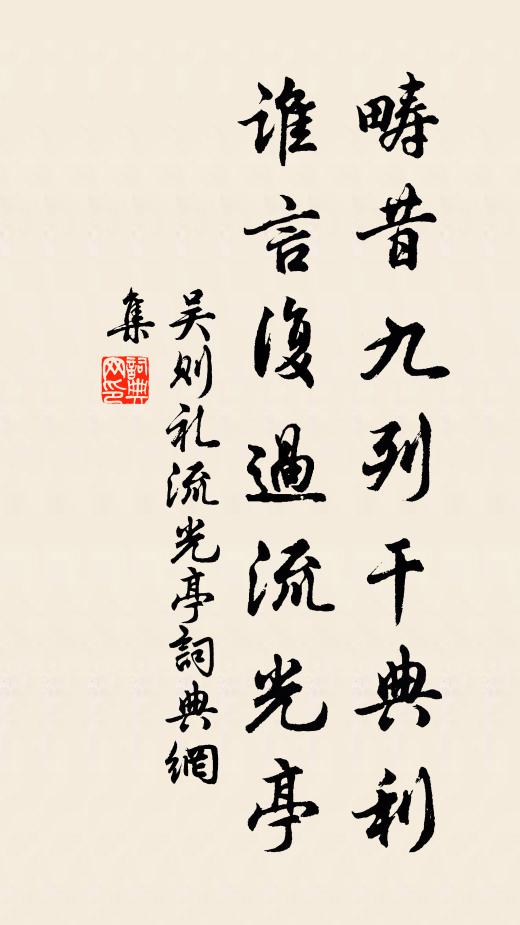 疇昔九列干典利
誰言復過流光亭
吴则礼流光亭詞典網
集
詞典网印